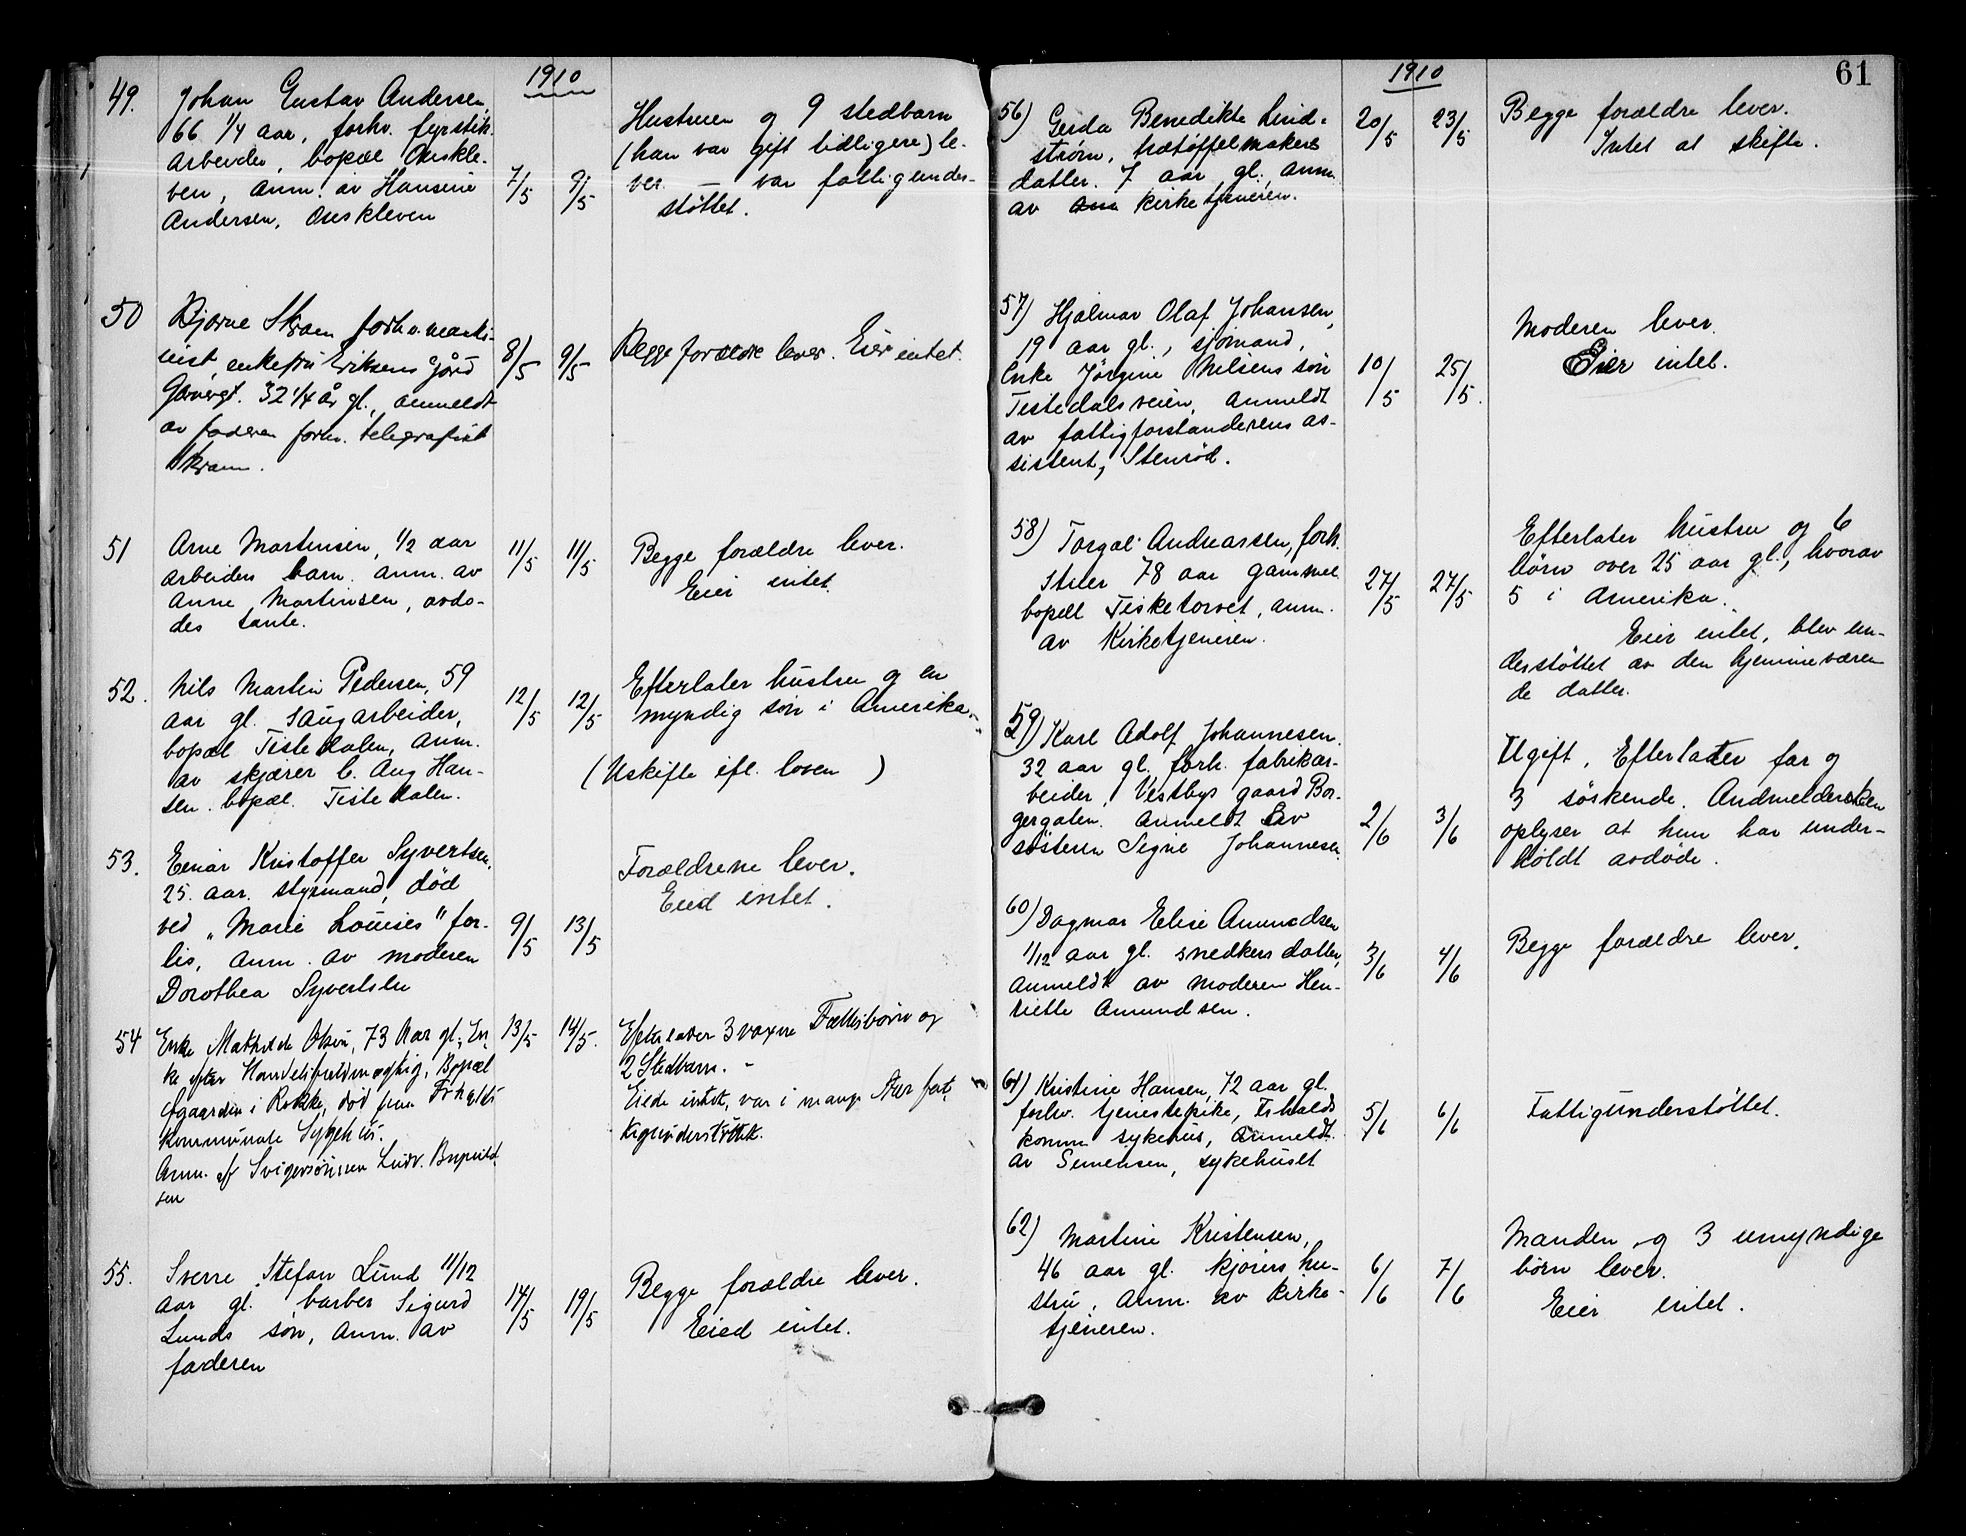 1910
49.
Johan Gustav Andersen,
66 1/4 aar, forhv. fyrstik.
arbeider, bopæl Ouskle-
ven, anm. av Hansine
Andersen, Ouskleven
7/5 9/5
Hustruen og 9 stedbarn
(han var gift tidligere) le-
ver. — var fattigunder-
støttet.
50
Bjarne Skram forhv. maski-
nist, enkefru Eriksens gård
32 1/4 år gl., anmeldt
av faderen forhv. telegrafist
Skram.
8/5 9/5
Begge forældre lever. Eier intet.
51
Arne Martinsen, 1/2 aar
arbeiders barn. anm. av
Anne Martinsen, avdø-
des tante.
11/5 11/5
Begge forældre lever.
Eier intet.
52.
Nils Martin Pedersen, 59
aar gl. saugarbeider,
bopæl Tistedalen, anm.
av skjærer C. Aug Han-
sen. bopæl. Tistedalen.
12/5 12/5
Efterlater hustru og en
myndig søn i Amerika.
(Uskifte ifl. loven)
53.
Einar Kristoffer Syvertsen,
25. aar. styrmand, død
ved „Marie Louises" for-
lis, anm. av moderen
Dorothea Syvertsen
9/5 13/5
Forældrene lever.
Eied intet.
54
Enke Mathilde Olsen, 73 Aar gl., En-
ke efter Handelsfuldmægtig, Bopæl
i Rokke, død paa Fr.halds
kommunale Sygehus.
Anm. af Svigersønnen Ludv.
sen
13/5 14/5.
Efterlader 3 voxne Fællesbørn og
2 Stedbarn. -
Eiede intet, var i mange Aar fat-
tigunderstøttet.
55.
Sverre Stefan Lund 11/12
aar gl. barber Sigurd
Lunds søn, anm. av
faderen
14/5 19/5
Begge forældre lever.
Eied intet.
1910
61
56)
Gerda Benedikte Lind-
strøm, trætøffelmakers
datter. 7 aar gl., anm
av kirketjeneren.
20/5 23/5
Begge forældre lever.
Intet at skifte.
57)
Hjalmar Olaf Johansen,
19 aar gl., sjømand,
Enke Jørgine Nilsens søn
Tistedalsveien, anmeldt
av fattigforstanderens as-
sistent, Stenrød.
10/5 25/5.
Moderen lever.
Eier intet.
58)
Andreassen, forh.
78 aar gammel
bopæl Fisketorvet, anm.
av Kirketjeneren.
27/5 27/5
Efterlater hustru og 6
børn over 25 aar gl., hvorav
5 i Amerika.
Eier intet, blev un-
derstøttet av den hjemmeværen
de datter.
59)
Karl Adolf Johannesen.
32 aar gl. forh. fabrikar-
beider, Vestbys gaard Bor-
gergaten. Anmeldt av
søsteren Signe Johannesen.
2/6 3/6
Ugift. Efterlater far og
3 søskende. Andmeldersken
oplyser at hun har under-
holdt avdøde.
60)
Dagmar Elise Amundsen
1/12 aar gl. snedkers datter,
anmeldt av moderen Hen-
riette Amundsen.
3/6 4/6
Begge forældre lever.
61)
Kristine Hansen, 72 aar gl.
forhv. tjenestepike, Fr.halds
komm. sykehus, Anmeldt.
av Semensen, sykehuset
5/6 6/6
Fattigunderstøttet.
62)
Martine Kristensen,
46 aar gl. kjørers hu-
stru, anm. av kirke-
tjeneren.
6/6 7/6
Manden og 3 umyndige
børn lever.
Eier intet.